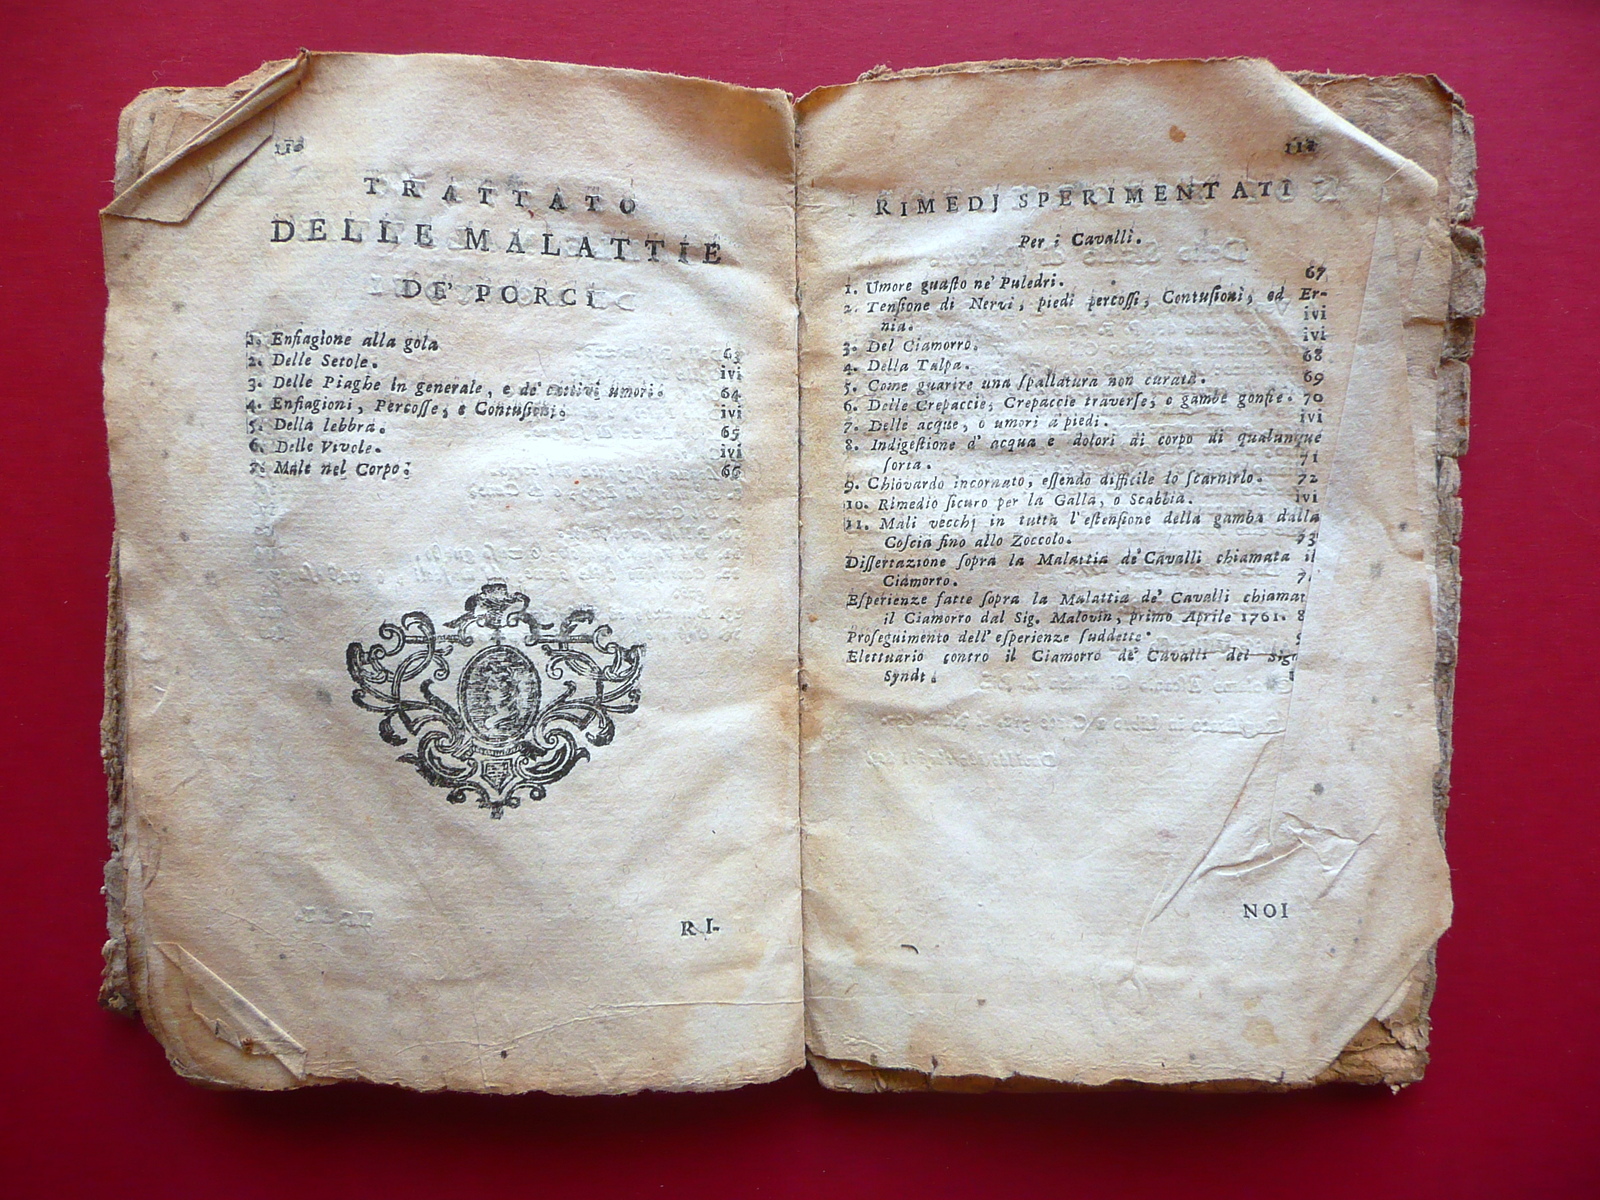 TRATTATO
DELLE MALATTIE
DE' PORCI
1. Enfiagione alla gola 63
2. Delle Setole. ivi
3. Delle Piaghe in generale, e de' cattivi umori. 64
4. Enfiagioni, Percoſſe, e Contuſioni. ivi
5. Della lebbra. 65
6. Delle Vivole. ivi
7. Male nel Corpo. 66
RI-
RIMEDJ SPERIMENTATI
Per i Cavalli.
1. Umore guaſto ne' Puledri. 67
2. Tenſione di Nervi, piedi percoſſi, Contuſioni, ed Er-
nia. ivi
3. Del Ciamorro. ivi
4. Della Talpa. 68
5. Come guarire una ſpallatura non curata. 69
6. Delle Crepaccie, Crepaccie traverſe, e gambe gonfie. 70
7. Delle acque, o umori a' piedi. ivi
8. Indigeſtione d' acqua e dolori di corpo di qualunque
ſorta. 71
9. Chiovardo incornato, eſſendo difficile lo ſcarnirlo. 72
10. Rimedio ſicuro per la Galla, o Scabbia. ivi
11. Mali vecchj in tutta l'eſtenſione della gamba dalla
Coſcia fino allo Zoccolo. 73
Diſſertazione ſopra la Malattia de' Cavalli chiamata il
Ciamorro. 7
Eſperienze fatte ſopra la Malattia de' Cavalli chiamat
il Ciamorro dal Sig. Malovin, primo Aprile 1761. 8
Proſeguimento dell' eſperienze ſuddette.
Elettuario contro il Ciamorro de' Cavalli del Sig.
Syndt.
NOI